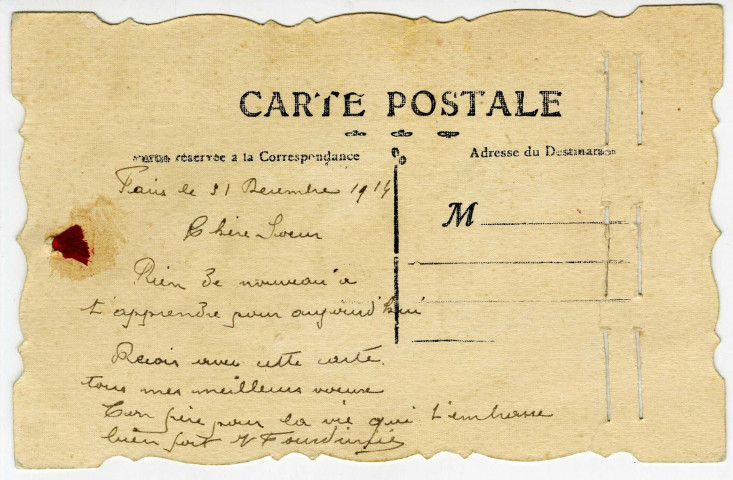 CARTE POSTALE
Partie réservée a la Correspondance
Adresse du Destinataire
Paris le 31 Decembre 1914
M
Chère Soeur
Rien de nouveau a
t'apprendre pour aujourd'hui
Recois avec cette carte
tous mes meilleurs voeux
Ton frère pour la vie qui t'embrasse
bien fort